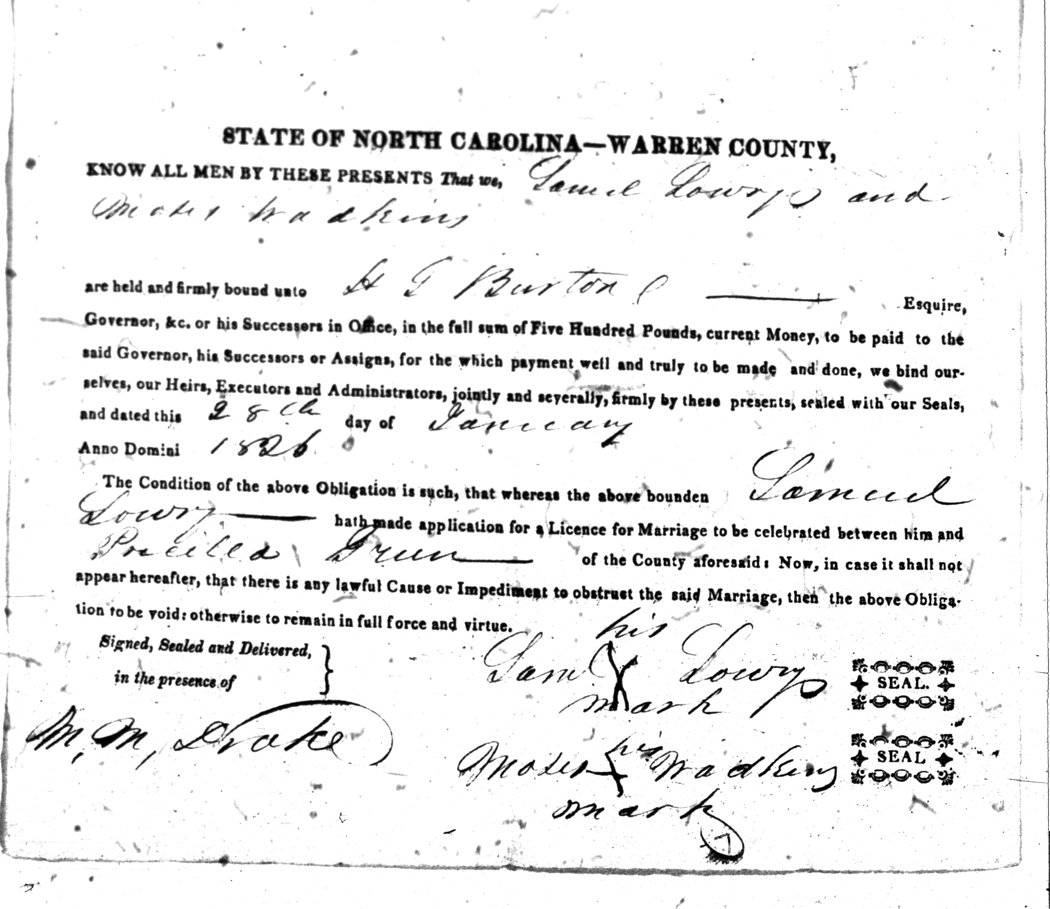 STATE OF NORTH CAROLINA—WARREN COUNTY,
KNOW ALL MEN BY THESE PRESENTS That we, Saml Lowry and
Moses Wadkins
are held and firmly bound unto H G Burton — Esquire,
Governor, &c. or his Successors in Office, in the full sum of Five Hundred Pounds, current Money, to be paid to the
said Governor, his Successors or Assigns, for the which payment well and truly to be made and done, we bind our-
selves, our Heirs, Executors and Administrators, jointly and severally, firmly by these presents, sealed with our Seals,
and dated this 28th day of January
Anno Domini 1826
The Condition of the above Obligation is such, that whereas the above bounden Samuel
Lowry — hath made application for a Licence for Marriage to be celebrated between him and
Priscilla Green — of the County aforesaid: Now, in case it shall not
appear hereafter, that there is any lawful Cause or Impediment to obstruct the said Marriage, then the above Obliga-
tion to be void: otherwise to remain in full force and virtue.
Signed, Sealed and Delivered,
in the presence of
M. M. Drake
his
Saml X Lowry SEAL.
mark
his
Moses X Wadkins SEAL
mark
7